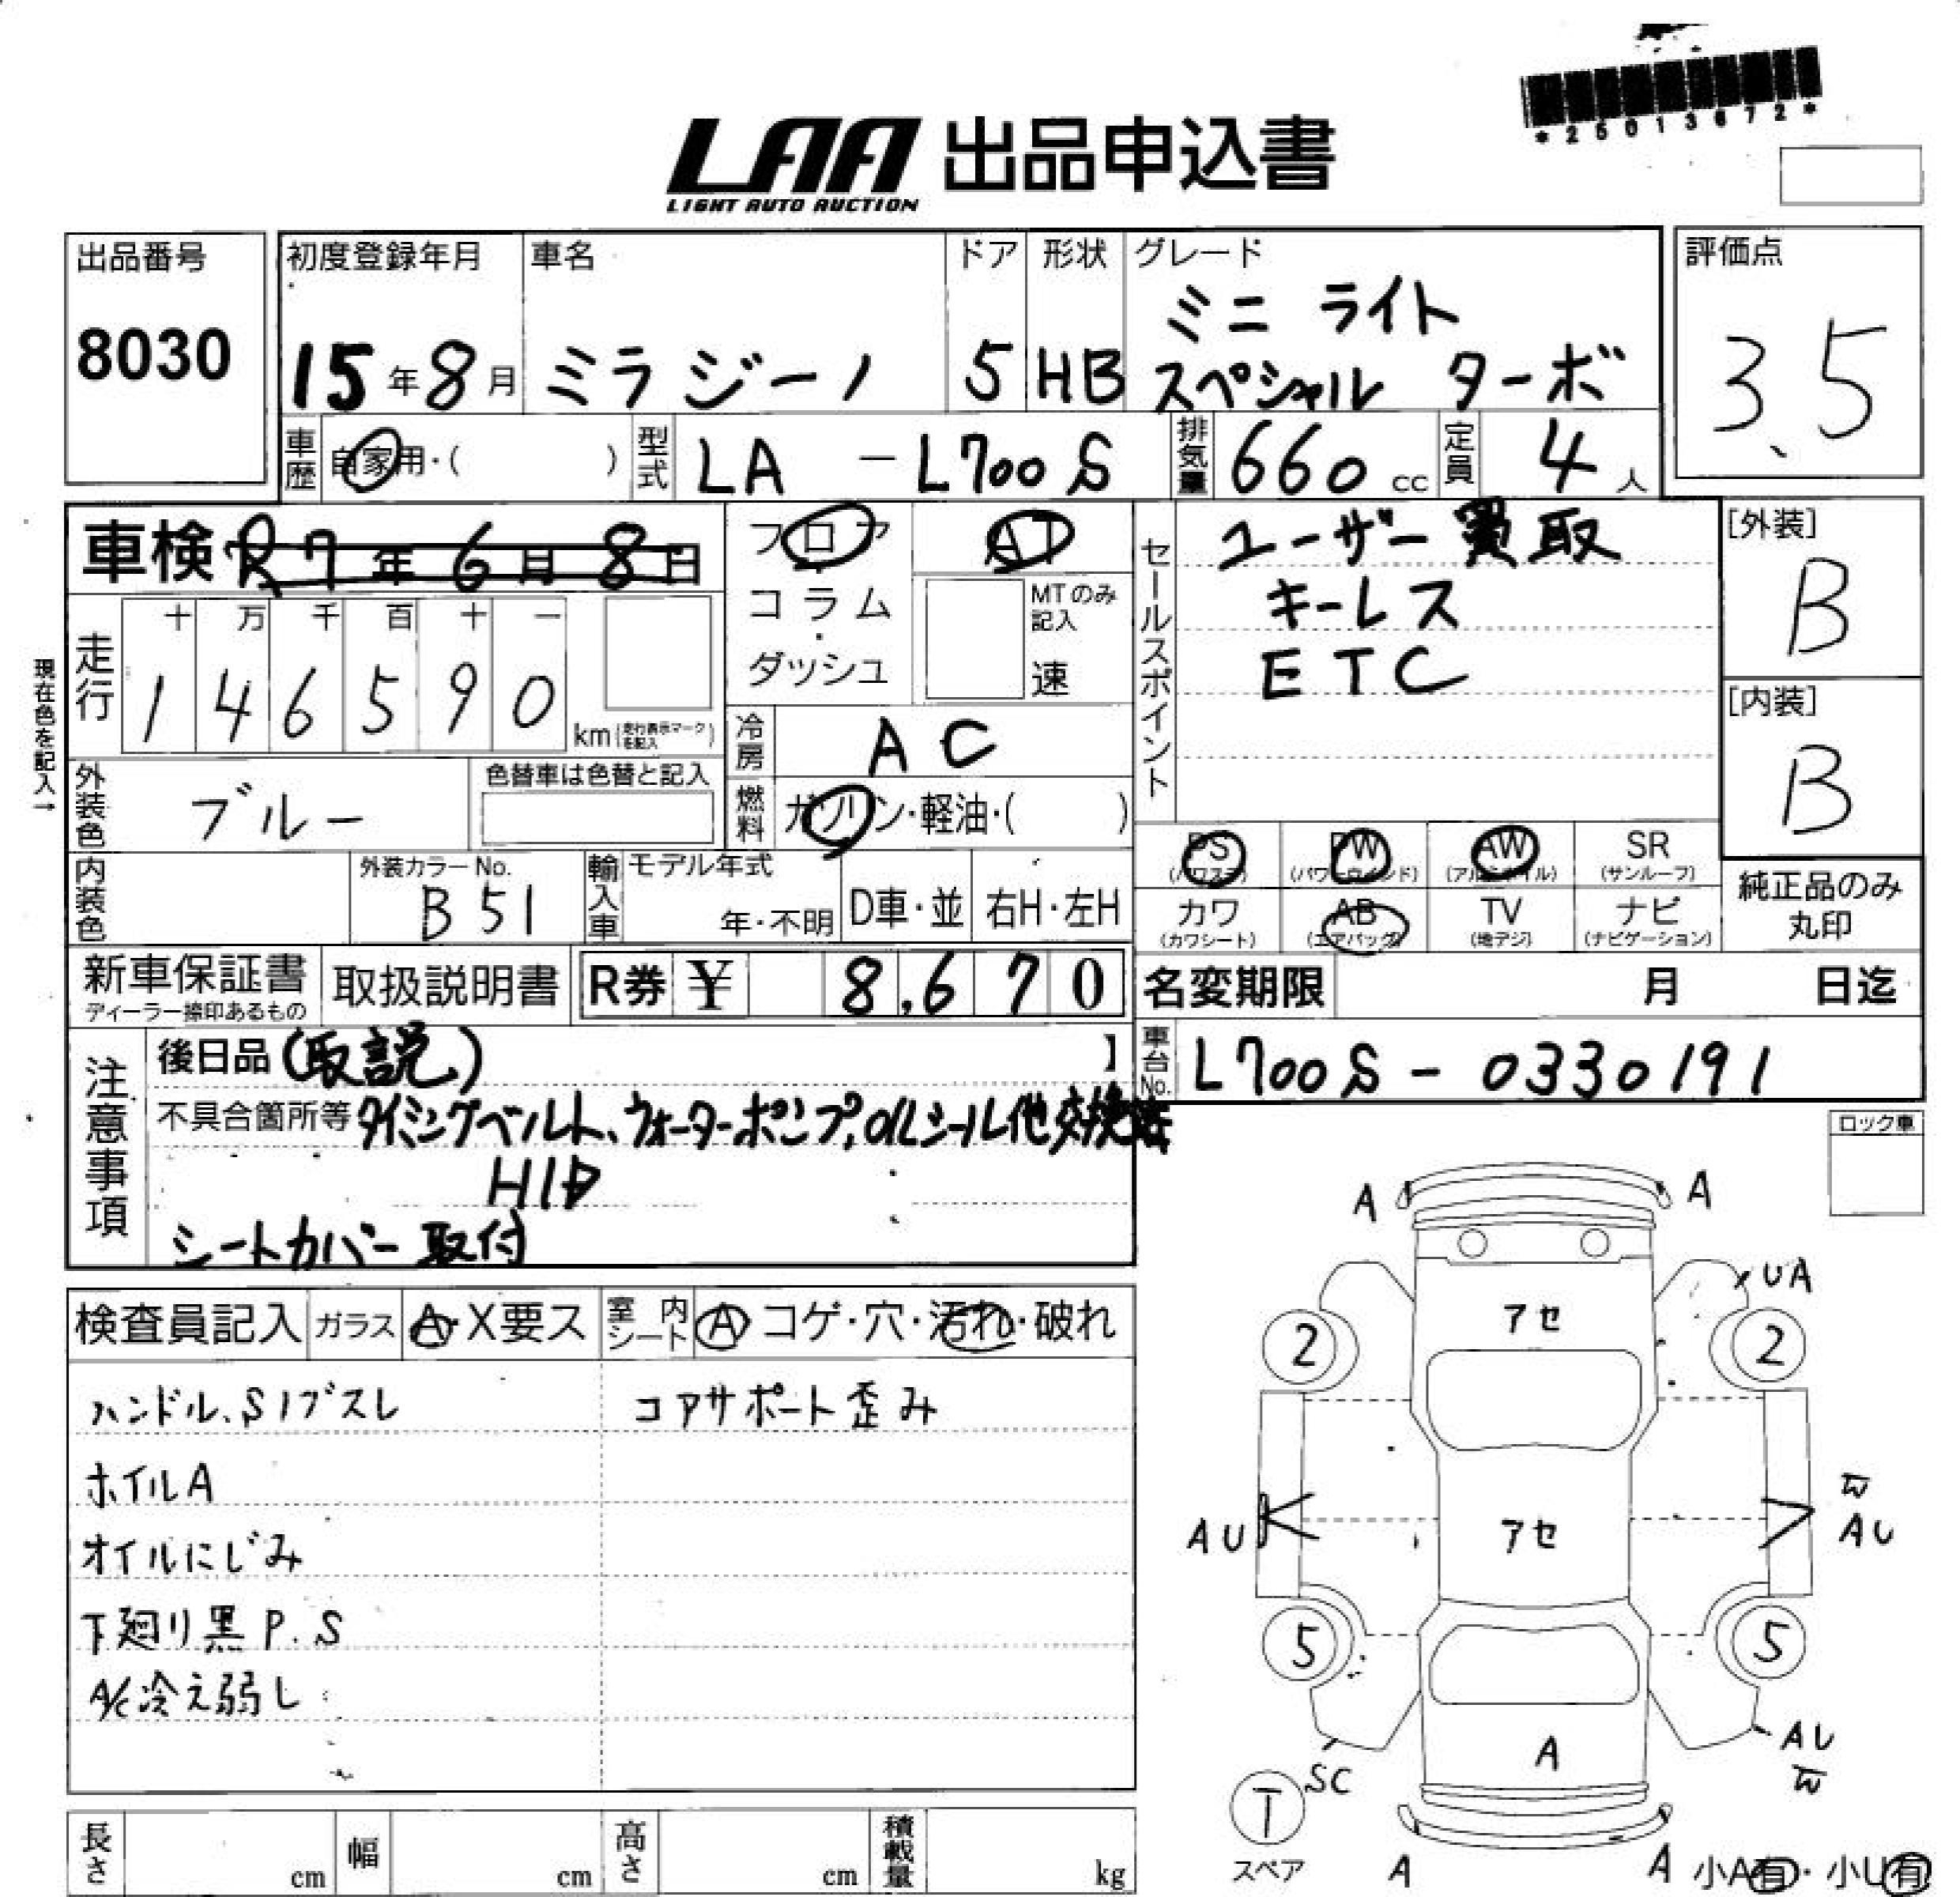 *25013672*
LAA 出品申込書
LIGHT AUTO AUCTION
出品番号
8030
初度登録年月
15年8月
車名
ミラジーノ
ドア
5
形状
HB
グレード
ミニ ライト
スペシャル ターボ
評価点
3.5
車歴 自家用・( )
型式 LA - L700S
排気量 660 cc
定員 4 人
車検 R7年6月8日
フロア・コラム・ダッシュ
AT
MTのみ記入
速
セールスポイント
ユーザー買取
キーレス
ETC
[外装]
B
[内装]
B
現在色を記入→
走行
十 万 千 百 十 一
1 4 6 5 9 0 km (走行表示マークを記入)
冷房 AC
燃料 ガソリン・軽油・( )
外装色 ブルー
色替車は色替と記入
内装色
外装カラーNo.
B51
輸入車
モデル年式
年・不明
D車・並
右H・左H
PS (パワステ)
PW (パワーウインド)
AW (アルミホイル)
SR (サンルーフ)
カワ (カワシート)
AB (エアバッグ)
TV (地デジ)
ナビ (ナビゲーション)
純正品のみ丸印
新車保証書
ディーラー捺印あるもの
取扱説明書
R券 ¥ 8,670
名変期限 月 日迄
車台No. L700S - 0330191
注意事項
後日品 (取説) 】
不具合箇所等 タイミングベルト、ウォーターポンプ、OILシール他交換済
HID
シートカバー取付
ロック車
検査員記入
ガラス
A・X要ス
室内シート
A コゲ・穴・汚れ・破れ
ハンドル、Sノブスレ
コアサポート歪み
ホイルA
オイルにじみ
下廻り黒P.S
A/C冷え弱し
A
A
UA
アセ
2
2
W
AU
アセ
AU
5
5
AU
W
SC
A
T
スペア
A
A
小A有・小U有
長さ cm
幅 cm
高さ cm
積載量 kg